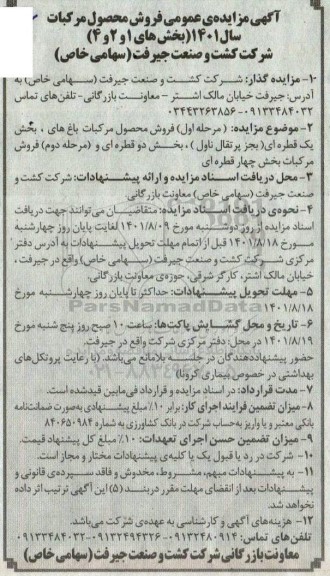 آگهی مزایده‌ی عمومی فروش محصول مرکبات
سال ۱۴۰۱ (بخش های ۱ و ۲ و ۴)
شرکت کشت و صنعت جیرفت (سهامی خاص)
۱- مزایده گذار: شرکت کشت و صنعت جیرفت (سهامی خاص) به
آدرس: جیرفت خیابان مالک اشتر - معاونت بازرگانی- تلفن‌های تماس
۰۹۱۳۳۴۸۴۰۳۲-۰۳۴۴۳۲۶۳۸۵۶
۲- موضوع مزایده: (مرحله اول) فروش محصول مرکبات باغ های، بخش
یک قطره ای (بجز پرتقال ناول)، بخش دو قطره ای و (مرحله دوم) فروش
مرکبات بخش چهار قطره ای
۳- محل دریافت اسناد مزایده و ارائه پیشنهادات: شرکت کشت و
صنعت جیرفت (سهامی خاص) معاونت بازرگانی.
۴- نحوه‌ی دریافت اسناد مزایده: متقاضیان می‌توانند جهت دریافت
اسناد مزایده از روز دوشنبه مورخ ۱۴۰۱/۸/۰۹ لغایت پایان روز چهارشنبه
مورخ ۱۴۰۱/۸/۱۸ قبل از اتمام مهلت تحویل پیشنهادات به آدرس دفتر
مرکزی شرکت کشت و صنعت جیرفت (سهامی خاص) واقع در جیرفت،
خیابان مالک اشتر، کارگر شرقی، حوزه‌ی معاونت بازرگانی.
۵- مهلت تحویل پیشنهادات: حداکثر تا پایان روز چهارشنبه مورخ
۱۴۰۱/۸/۱۸
۶- تاریخ و محل گشایش پاکت‌ها: ساعت ۱۰ صبح روز پنج شنبه مورخ
۱۴۰۱/۸/۱۹ در محل: دفتر مرکزی شرکت واقع در جیرفت.
حضور پیشنهاددهندگان در جلسه بلامانع می‌باشد. (با رعایت پروتکل‌های
بهداشتی در خصوص بیماری کرونا)
۷- مدت قرارداد: در اسناد مزایده و قرارداد فی‌مابین قیدشده است.
۸- میزان تضمین فرایند اجرای کار: برابر ۱۰٪ مبلغ پیشنهادی به‌صورت ضمانت‌نامه
بانکی معتبر و یا واریز به‌حساب شرکت در بانک کشاورزی به شماره ۸۴۰۶۵۰۹۸۴
۹- میزان تضمین حسن اجرای تعهدات: ۱۰٪ مبلغ کل پیشنهاد قیمت.
۱۰- شرکت در رد یا قبول یک یا کلیه‌ی پیشنهادات مختار و مجاز است.
۱۱- به پیشنهادات مبهم، مشروط، مخدوش و فاقد سپرده‌ی قانونی و
پیشنهادات بعد از انقضای مهلت مقرر دربند (۵) این آگهی ترتیب اثر داده
نخواهد شد.
۱۲- هزینه‌های آگهی و کارشناسی به عهده‌ی شرکت می‌باشد.
تلفن‌های تماس: ۰۹۱۳۲۴۸۰۹۱۴-۰۹۱۳۲۴۹۴۳۲۶-۰۹۱۳۳۴۸۴۰۳۲
معاونت بازرگانی شرکت کشت و صنعت جیرفت (سهامی خاص)
ParsNamadData